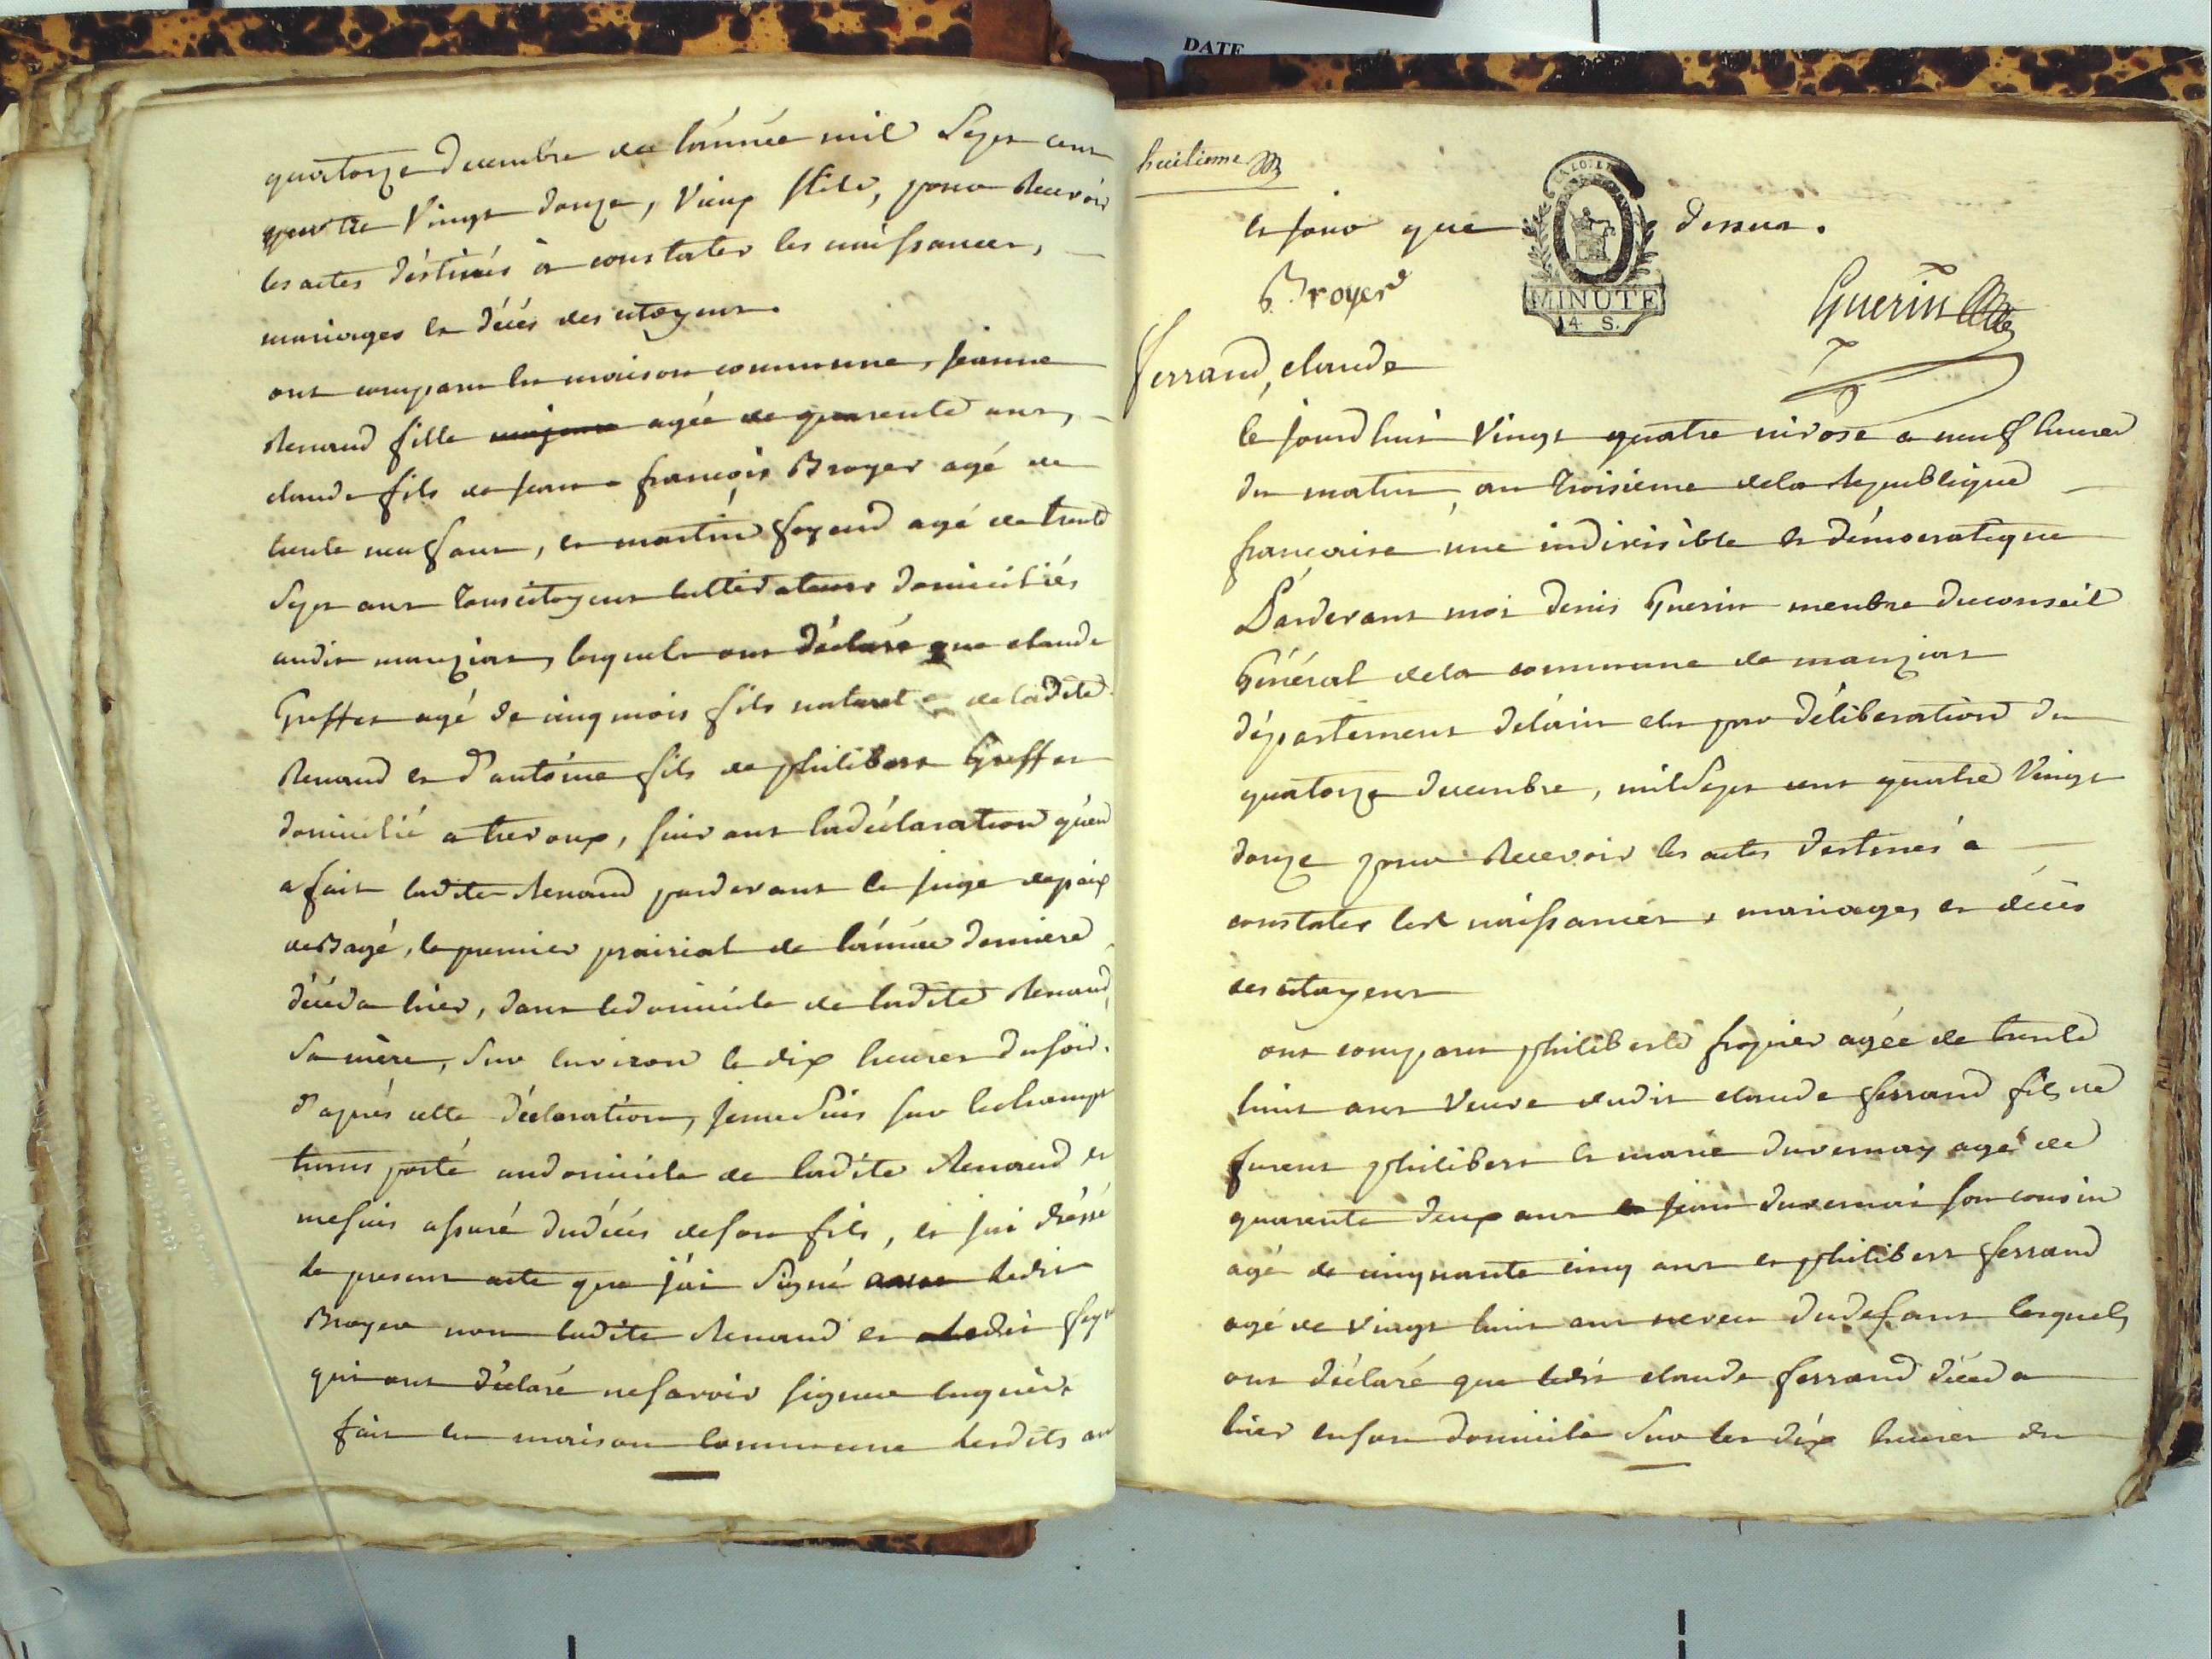 DATE
quatorze decembre de l'année mil Sept cent
quatre Vingt douze, Vieux stile, pour Recevoir
les actes déstinés à constater les naissances,
mariages et décés des citoyens.
ont comparu en maison commune, jeanne
Renaud fille majeure agée de quarente ans,
claude fils de jean françois Broyer agé de
trente neuf ans, et martin agé de trente
Sept ans tous citoyens cultivateurs domiciliés
audit manziat, lesquels ont déclaré que claude
Greffet agé de cinq mois fils naturel de ladite
Renaud et d'antoine fils de philibert Greffet
domicilié a trevoux, suivant la déclaration qu'en
a fait ladite Renaud pardevant le juge de paix
de Bagé, le premier prairial de l'année derniere
décéda hier, dans le domicile de ladite Renaud,
Sa mère, Sur lenviron le dix heures du soir.
d'aprés cette déclaration, je me Suis sur le champt
transporté au domicile de ladite Renaud et
me suis assuré du décés de son fils, et j'ai dréssé
le present acte que j'ai Signé avec ledit
Broyer non ladite Renaud et ledit
qui ont déclaré ne savoir signer enquis.
fait en maison commune lesdits an
huitieme
et jour que dessus.
LA LOI
MINUTE
4 S.
B royer
Guerin
ferrand, claude
le jourd'huit Vingt quatre nivose a neuf heures
du matin, an troisieme de la Republique
françaisse une indivisible et démocratique
Pardevant moi denis Guerin menbre du conseil
Général de la commune de manziat
département de l'ain elu par déliberation du
quatorze decembre, mil Sept cent quatre Vingt
douze pour Recevoir les actes destinés à
constater les naissances, mariages, et décés
des citoyens
ont comparu philiberte agée de trente
huit ans Veuve dudit claude ferrand fils de
furent philibert et marie duvernay agé de
quarente deux ans et jean duvernai son cousin
agé de cinquante cinq ans et philibert ferrand
agé de vingt huit ans neveu du defunt lesquels
ont déclaré que ledit claude ferrand décéda
hier en son domicile Sur les dix heures du